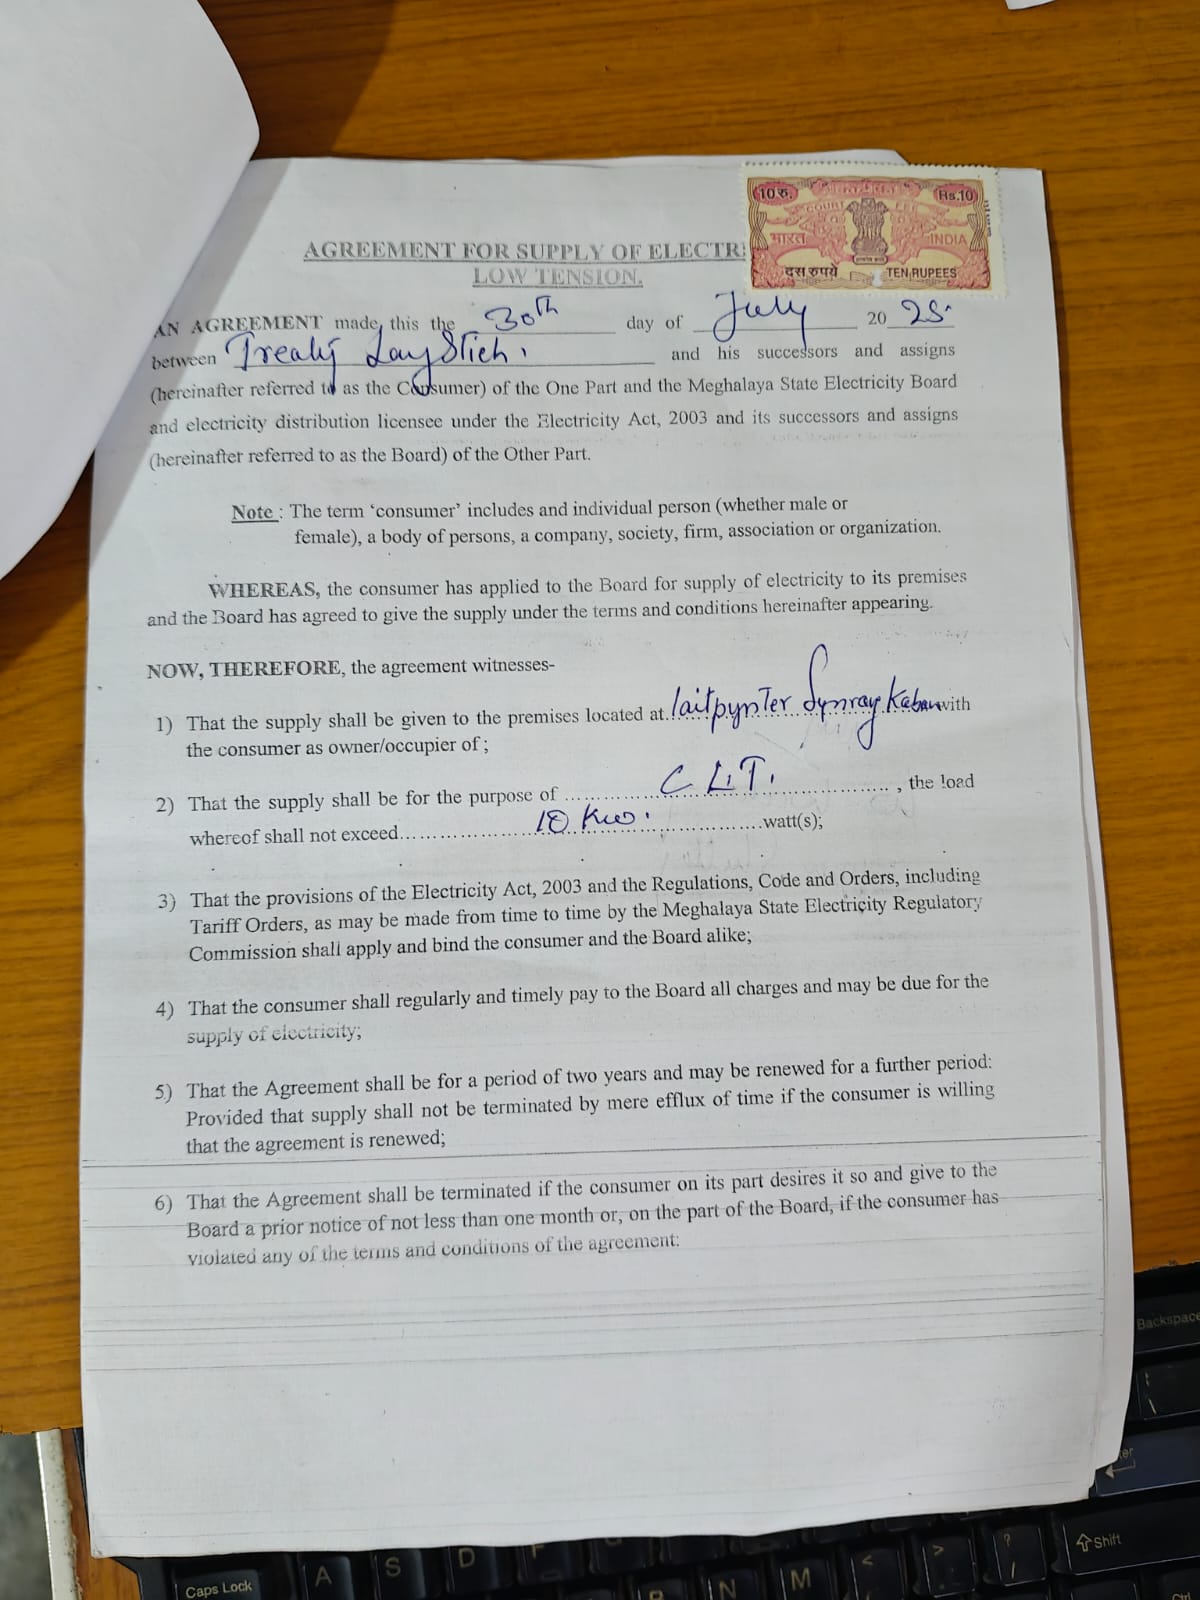 10रु.
Rs.10
COURT FEE
भारत
INDIA
दस रुपये
TEN RUPEES
AGREEMENT FOR SUPPLY OF ELECTRI
LOW TENSION.
AN AGREEMENT made, this the 30th day of July 20 25.
between Trealy Lay Stich. and his successors and assigns
(hereinafter referred to as the Consumer) of the One Part and the Meghalaya State Electricity Board
and electricity distribution licensee under the Electricity Act, 2003 and its successors and assigns
(hereinafter referred to as the Board) of the Other Part.
Note : The term ‘consumer’ includes and individual person (whether male or
female), a body of persons, a company, society, firm, association or organization.
WHEREAS, the consumer has applied to the Board for supply of electricity to its premises
and the Board has agreed to give the supply under the terms and conditions hereinafter appearing.
NOW, THEREFORE, the agreement witnesses-
1) That the supply shall be given to the premises located at laitpynter Synray with
the consumer as owner/occupier of ;
2) That the supply shall be for the purpose of ........ C L.T. ........ , the load
whereof shall not exceed........ 10 Kw. ........watt(s);
3) That the provisions of the Electricity Act, 2003 and the Regulations, Code and Orders, including
Tariff Orders, as may be made from time to time by the Meghalaya State Electricity Regulatory
Commission shall apply and bind the consumer and the Board alike;
4) That the consumer shall regularly and timely pay to the Board all charges and may be due for the
supply of electricity;
5) That the Agreement shall be for a period of two years and may be renewed for a further period:
Provided that supply shall not be terminated by mere efflux of time if the consumer is willing
that the agreement is renewed;
6) That the Agreement shall be terminated if the consumer on its part desires it so and give to the
Board a prior notice of not less than one month or, on the part of the Board, if the consumer has
violated any of the terms and conditions of the agreement:
Backspace
Shift
Caps Lock
A
S
D
F
N
M
<
>
?
/